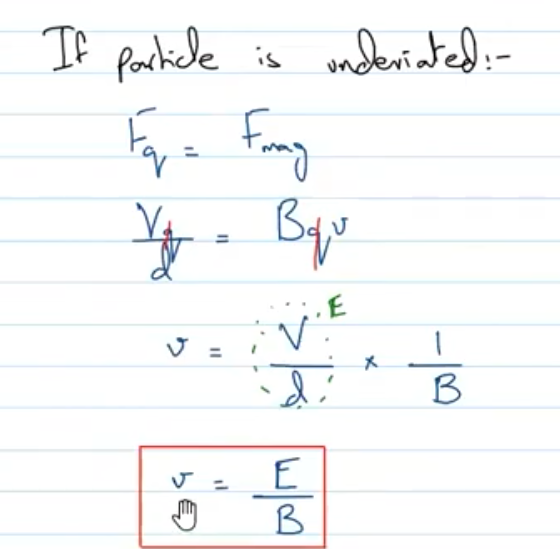 If particle is undeviated:-
Fq = Fmag
Vq/d = Bqv
v = V/d × 1/B
E
v = E/B